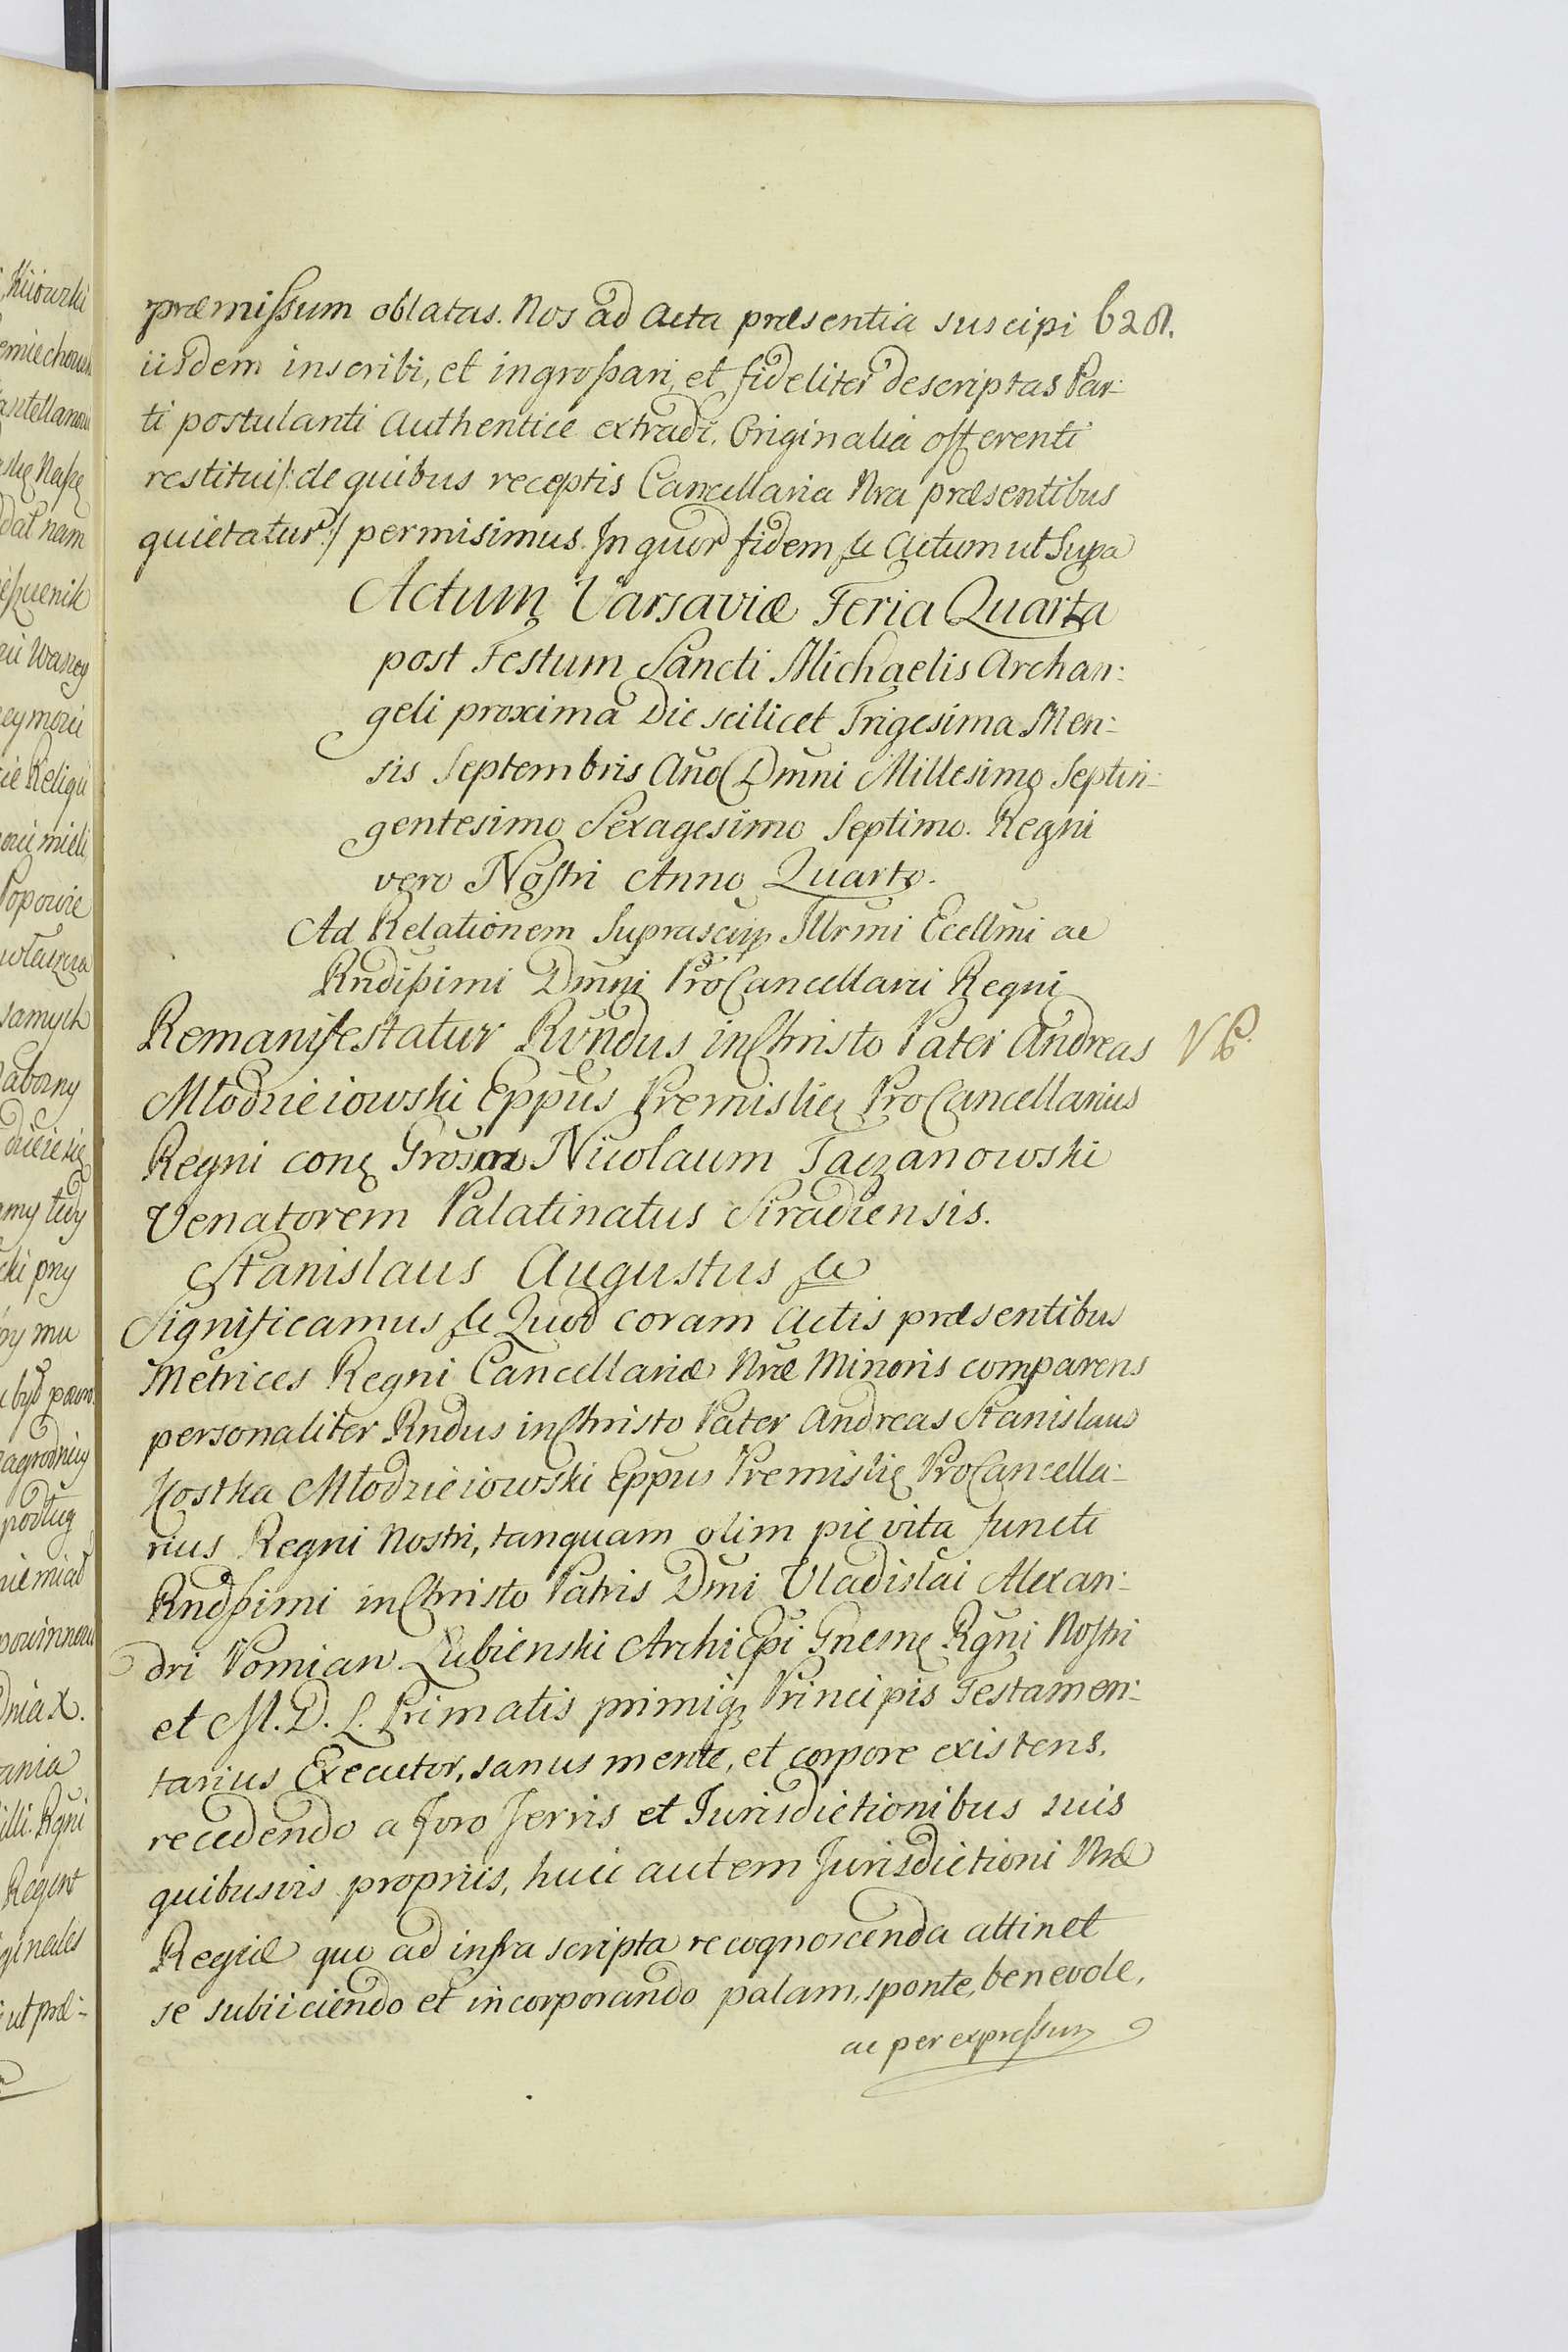 præmissum oblatas. Nos ad Acta præsentia suscipi 628.
iisdem inscribi, et ingrossari, et fideliter descriptas Par-
ti postulanti Authentice extradi. Originalia offerenti
restitui /: de quibus receptis Cancellaria Nra præsentibus
quietatur :/ permisimus. In quor fidem &c Actum ut Supra
Actum Varsaviæ Feria Quarta
post Festum Sancti Michaelis Archan:
geli proxima Die scilicet Trigesima Men:
sis Septembris Año Dmni Millesimo Septin:
gentesimo Sexagesimo Septimo. Regni
vero Nostri Anno Quarto.
Ad Relationem Suprascrip Illrmi Ecellmi ac
Rndissimi Dmni ProCancellarii Regni
Remanifestatur Rvndus in Christo Pater Andreas
Młodzieiowski Eppus Premisliẹ ProCancellarius
Regni conẹ Grosum Nicolaum Taczanowski
Venatorem Palatinatus Siradiensis.
Stanislaus Augustus &c
Significamus &c Quod coram Actis præsentibus
Metrices Regni Cancellariæ Nræ Minoris comparens
personaliter Rndus in Christo Pater Andreas Stanislaus
Kostka Młodzieiowski Eppus Premisliẹ ProCancella-
rius Regni Nostri, tanquam olim pie vita functi
Rndssimi in Christo Patris Dmi Vladislai Alexan:
dri Pomian Lubienski Archiepi Gnesnẹ Rgni Nostri
et M. D. L. Primatis primiq Principis Testamen:
tarius Executor, sanus mente, et corpore existens,
recedendo a foro Terris et Iurisdictionibus suis
quibusvis propriis, huic autem Jurisdictioni Nræ
Regiæ quo ad infra scripta recognoscenda attinet
se subiiciendo et incorporando palam, sponte, benevole,
ac per expressum